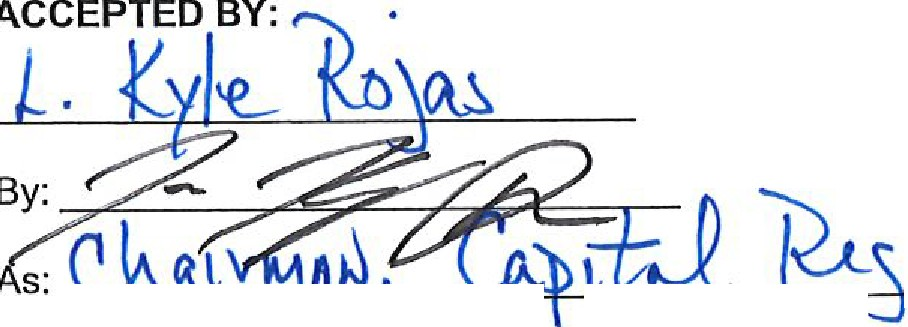 ACCEPTED BY:
L. Kyle Rojas
By:
As: Chairman. Capital Reg